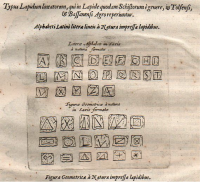 Typus Lapidum literatorum, qui in Lapide quodam Schistorum genere, in Tolfensi,
& Bassanensi Agro reperiuntur.
Alphabeti Latini literæ à Natura impressæ lapidibus.
Literæ Alphabeti in Saxis
à natura formatæ
A B C D E F G H
Figuræ Geometricæ à natura
in Saxis formatæ
Figuræ Geometricæ à Natura impressæ lapidibus.